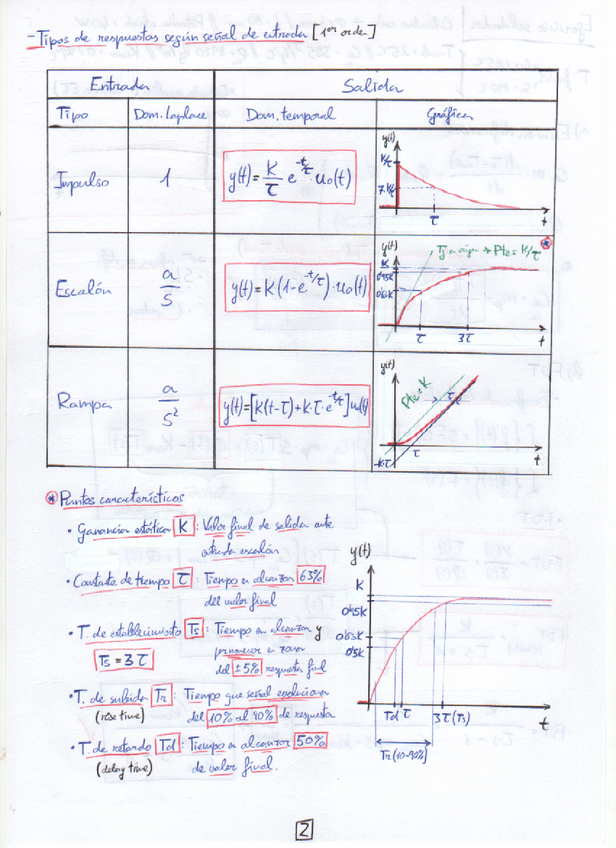 - Tipos de respuestas según señal de entrada [1er orden]
Entrada Salida
Tipo Dom. laplace Dom. temporal Gráfica
Impulso 1 y(t) = K/τ e^(-t/τ) · u₀(t)
y(t) K/τ τ t
Escalón a/S y(t) = K(1-e^(-t/τ)) · u₀(t)
y(t) K 0'95K 0'63K τ 3τ t
Tg en origen → Pte = K/τ
Rampa a/S² y(t) = [K(t-τ) + K·τ·e^(-t/τ)] u₀(t)
y(t) Pte = K τ τ -Kτ t
Puntos característicos
· Ganancia estática K : Valor final de salida ante
entrada escalón
· Constante de tiempo τ : Tiempo en alcanzar 63%
del valor final
· T. de establecimiento Ts : Tiempo en alcanzar y
permanecer en zona
Ts = 3τ del ±5% respuesta final
· T. de subida Tr : Tiempo que señal evoluciona
(rise time) del 10% al 90% de respuesta
· T. de retardo Td : Tiempo en alcanzar 50%
(delay time) de valor final.
y(t)
K
0'95K
0'63K
0'5K
Td τ 3τ (Ts) t
Tr (10-90%)
2